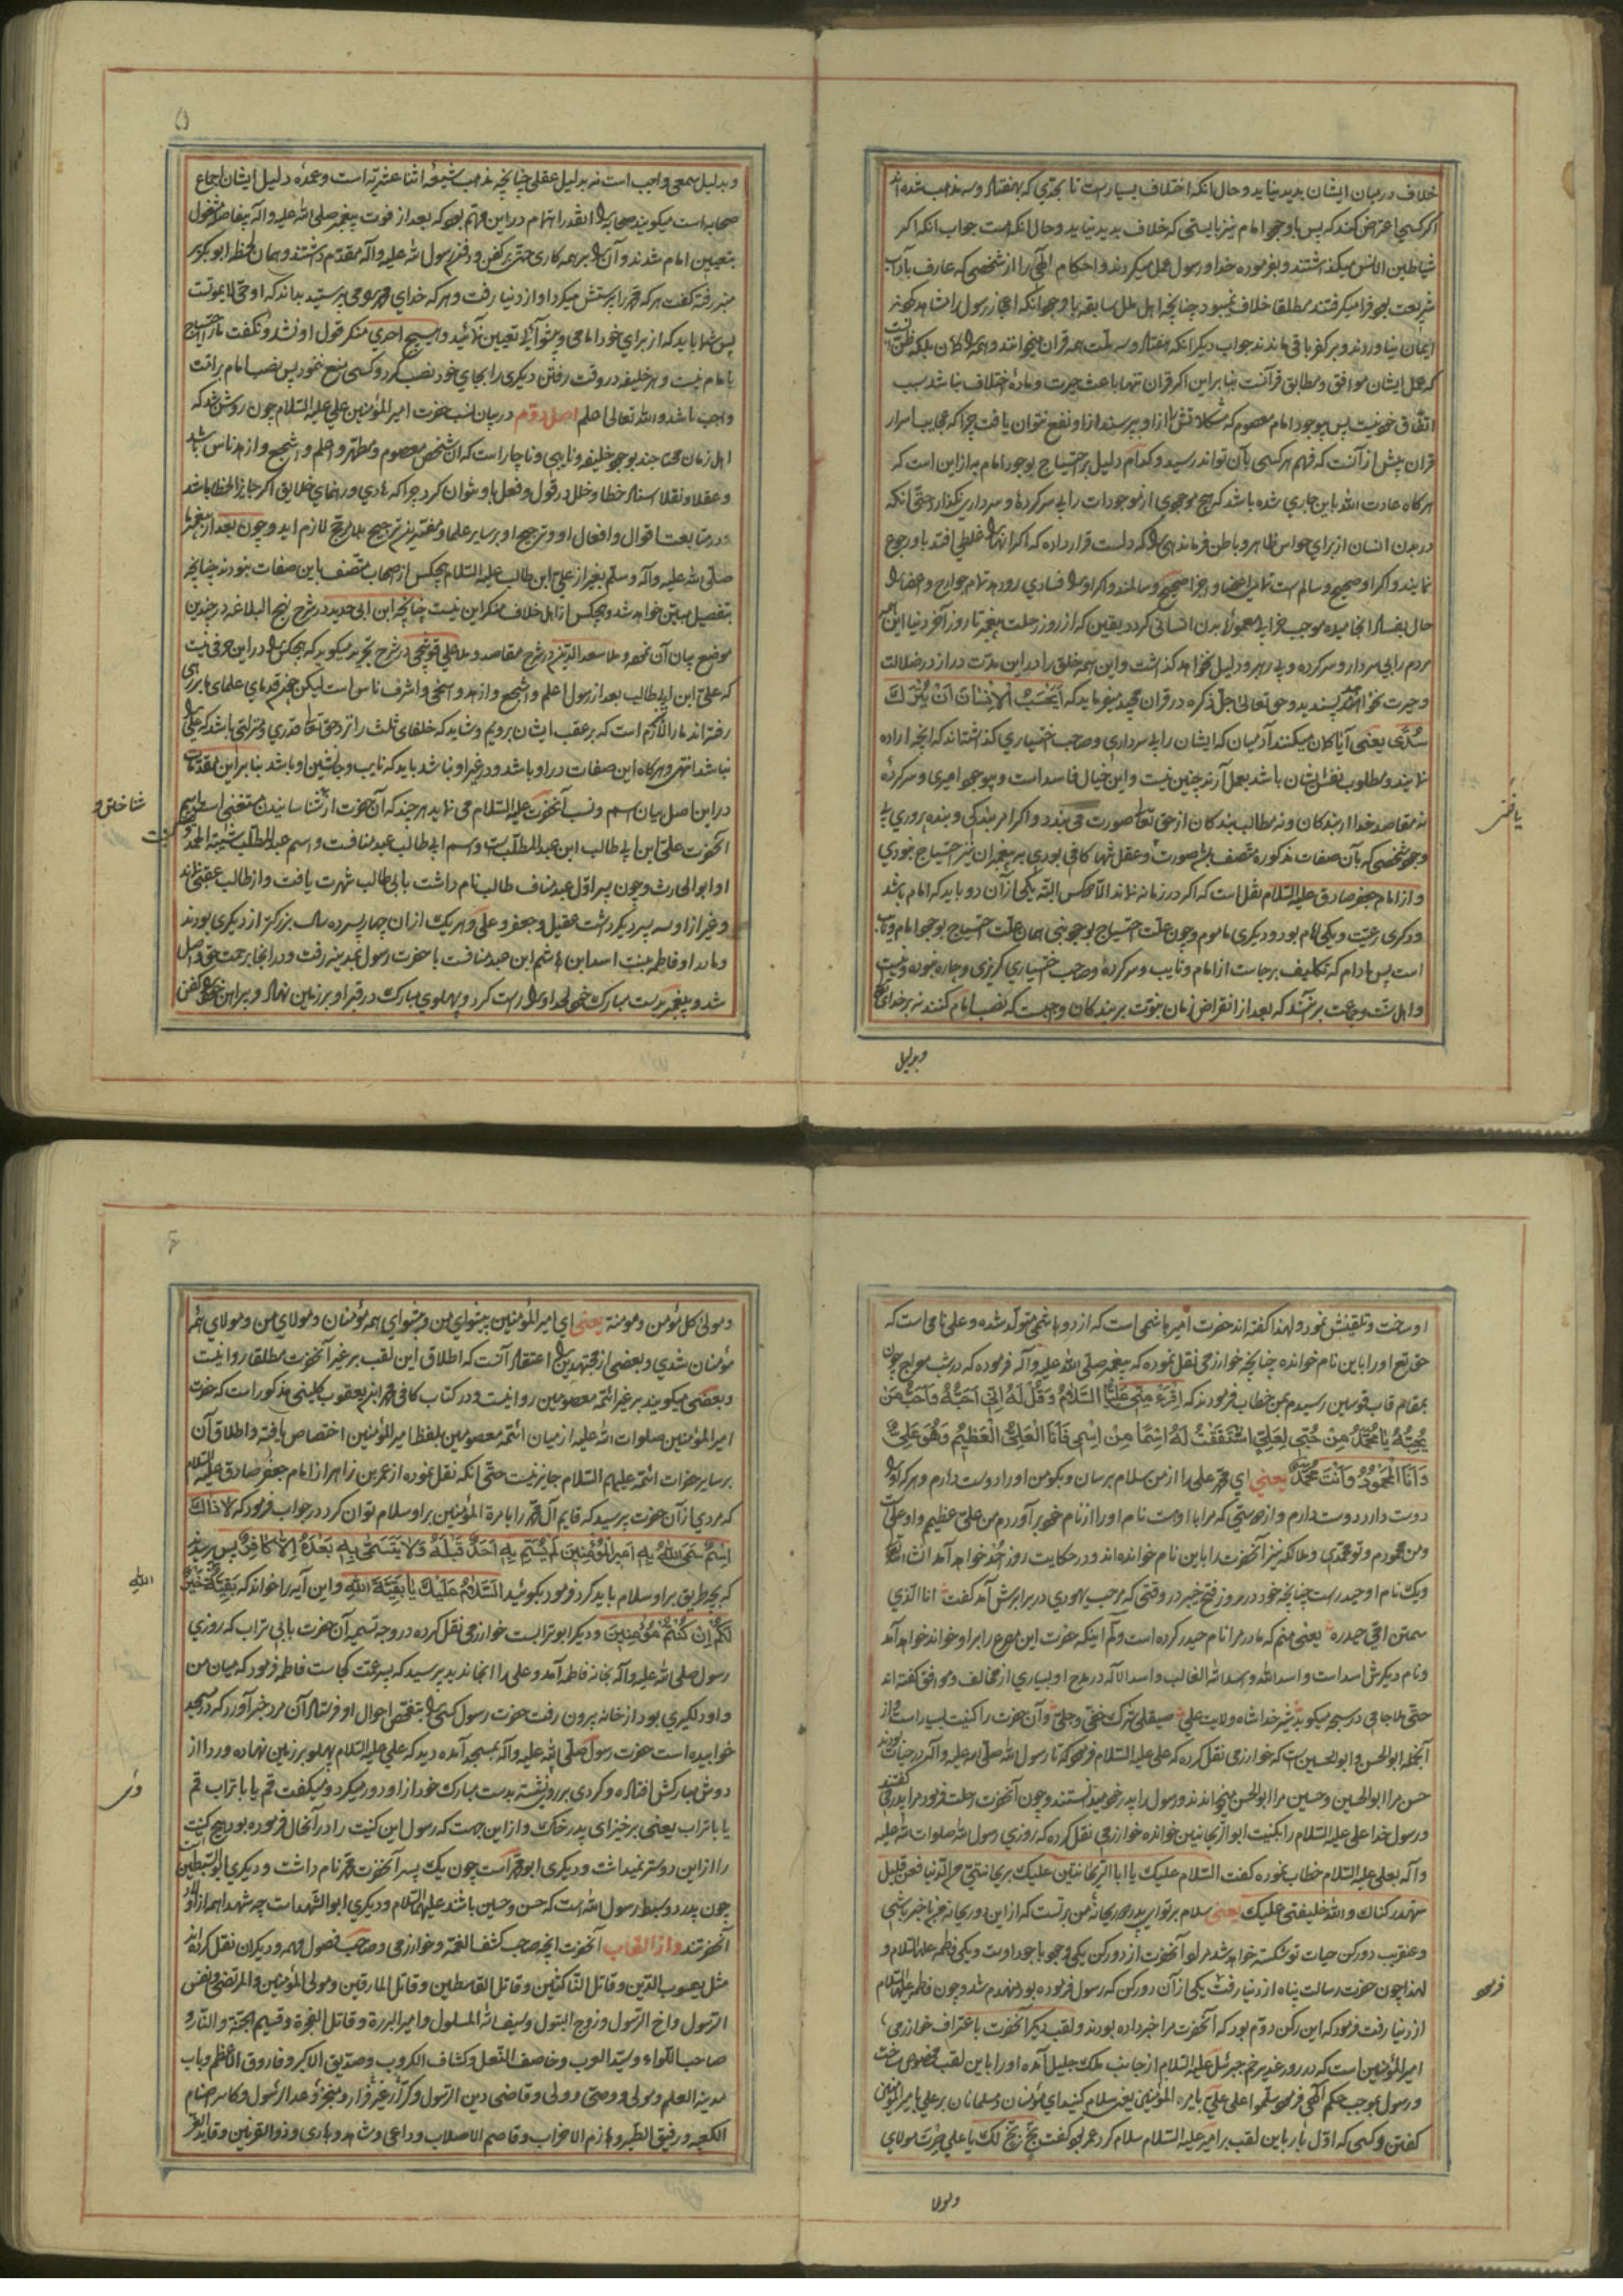 خلاف در میان ایشان پدید نیاید و حال آنکه اختلاف بسیار است تا بحدی که بهفتاد و سه مذهب شده اند
اکر کسی اعتراض کند که پس با وجود امام نیز بایستی که خلاف پدید نیاید و حال آنکه هست جواب آنکه اکر
شیاطین الانس میکذاشتند و بفرموده خدا و رسول عمل میکردند و احکام الهی را از شخصی که عارف بآداب
شریعت بود فرا میکرفتند مطلقا خلاف نمیبود چنانچه اهل ملل سابقه با وجود آنکه اعجاز رسول را مشاهده نمودند
ایمان نیاوردند و بر کفر باقی ماندند جواب دیکر آنکه هفتاد و سه ملت همه قران میخوانند و همه را کمان بلکه ظن آنست
که عمل ایشان موافق و مطابق قرآنست بنابراین اکر قران تنها باعث حیرت و ماده اختلاف نباشد سبب
اتفاق خود نیست پس بوجود امام معصوم که مشکلاتش را از او بپرسند از او نفع نتوان یافت چرا که عجایب اسرار
قران پیش از آنست که فهم هر کسی بآن تواند رسید و کدام دلیل بر احتیاج بوجود امام به از این است که
هر کاه عادت الله باین جاری شده باشد که هیچ موجودی از موجودات را بی سرکرده و سرداری نکذارد حتی آنکه
در بدن انسان از برای حواس ظاهر و باطن فرماندهی که دلست قرار داده که اکر آنها را غلطی افتد باو رجوع
نمایند و اکر او صحیح و سالم است تمامی اعضا و اجزا صحیح و سالمند و اکر او را فسادی رو دهد تمام جوارح و اعضا را
حال بفساد انجامیده موجب خرابی معموره بدن انسانی کردد یقین که از روز رحلت پیغمبر تا روز آخر دنیا این همه
مردم را بی سردار و سرکرده و بی رهبر و دلیل نخواهد کذاشت و این همه خلق را در این مدت دراز در ضلالت
و حیرت نخواهد پسندید و حق تعالی جل ذکره در قران مجید میفرماید که اَیَحْسَبُ الْاِنْسَانُ اَنْ یُتْرَكَ
سُدًی یعنی آیا کمان میکنند آدمیان که ایشان را بی سرداری و صاحب اختیاری کذاشته اند که آنچه اراده
نمایند و مطلوب نفس ایشان باشد بعمل آرند چنین نیست و این خیال فاسد است و بی وجود امیری و سرکرده
نه مقاصد خدا از بندکان و نه مطالب بندکان از حق تعالی صورت می بندد و اکر امر بندکی و بنده پروری بی
وجود شخصی که بآن صفات مذکوره متصف باشد صورت و عقل تنها کافی بودی به پیغمبران نیز احتیاج نبودی
و از امام جعفر صادق علیه السلام نقل است که اکر در زمانه نماند الا دو کس البته یکی از آن دو باید که امام باشد
و دیکری رعیت و یکی امام بود و دیکری ماموم و چون علت احتیاج بوجود نبی همان علت احتیاج بوجود امام و نایب
است پس مادام که تکالیف بر جاست از امام و نایب و سرکرده و صاحب اختیاری کریزی و چاره نبوده و نیست
و اهل سنت و جماعت بر آنند که بعد از انقراض زمان نبوت بر بندکان واجبست که نصب امام کنند نه بر خدای تعالی
و بدلیل
و بدلیل سمعی واجب است نه بدلیل عقلی چنانچه مذهب شیعه اثنا عشریه است و عمده دلیل ایشان اجماع
صحابه است میکویند صحابه را آنقدر اهتمام در این مهم بود که بعد از فوت پیغمبر صلی الله علیه و آله بیفاصله مشغول
بتعیین امام شدند و آن را بر همه کاری حتی بر کفن و دفن رسول الله علیه و آله مقدم داشتند و همان لحظه ابو بکر بر
منبر رفته کفت هر که محمد را پرستش میکرد او از دنیا رفت و هر که خدای محمد را می پرستید بداند که او حی لا یموت
پس شما را باید که از برای خود امامی و پیشوایی تعیین نمائید و هیچ احدی منکر قول او نشد و نکفت ما را احتیاج
بامام نیست و هر خلیفه در وقت رفتن دیکری را بجای خود نصب کرد و کسی منع ننمود پس نصب امام بر امت
واجب باشد و الله تعالی اعلم اصل دوم در بیان نسب حضرت امیر المؤمنین علی علیه السلام چون روشن شد که
اهل زمان محتاجند بوجود خلیفه و نایبی و ناچار است که آن شخص معصوم و مطهر و اعلم و اشجع و ازهد ناس باشد
و عقلا و نقلا اسناد خطا و خلل در قول و فعل باو نتوان کرد چرا که هادی و رهنمای خلایق اکر جایز الخطا باشد
در متابعت اقوال و افعال او و ترجیح او بر سایر علما و مفتیین ترجیح بلا مرجح لازم آید و چون بعد از پیغمبر ما
صلی الله علیه و آله و سلم بغیر از علی ابن ابی طالب علیه السلام هیچکس از صحاب متصف باین صفات نبودند چنانچه
بتفصیل مبین خواهد شد و هیچکس از اهل خلاف منکر این نیست چنانچه ابن ابی حدید در شرح نهج البلاغه در چندین
موضع بیان آن نموده و ملا سعد الدین در شرح مقاصد و ملا علی قوشچی در شرح تجرید میکوید که هیچکس را در این حرفی نیست
که علی ابن ابی طالب بعد از رسول اعلم و اشجع و ازهد و اسخی و اشرف ناس است لیکن چون قدمای علمای ما براهی
رفته اند ما را لازم است که بر عقب ایشان برویم و شاید که خلفای ثلث را نزد حق تعالی قدری و منزلتی باشد که علی را
نباشد انتهی و هرکاه این صفات در او باشد و در غیر او نباشد باید که نایب و جانشین او باشد بنابر این مقدمات
در این اصل بیان اسم و نسب آنحضرت علیه السلام می نماید هر چند که آن حضرت از شناسانیدن مستغنی است اسم
آنحضرت علی ابن ابی طالب ابن عبد المطلب است و اسم ابی طالب عبد مناف است و اسم عبد المطلب شیبة الحمد و کنیت
او ابو الحارث و چون پسر اول عبد مناف طالب نام داشت بابی طالب شهرت یافت و از طالب عقبی نماند
و غیر از او سه پسر دیکر داشت عقیل و جعفر و علی و هر یک از آن چهار پسر ده سال بزرکتر از دیکری بودند
و مادر او فاطمه بنت اسد ابن هاشم ابن عبد مناف است با حضرت رسول بمدینه رفت و در آنجا برحمت حق واصل
شد و پیغمبر بدست مبارک خود لحد او را راست کرد و پهلوی مبارک در قبر او بر زمین نهاد و پیراهن خود را کفن
او ساخت و تلقینش نمود و لهذا کفته اند حضرت امیر هاشمی است که از دو هاشمی متولد شده و علی نامی است که
حق تع او را باین نام خوانده چنانچه خوارزمی نقل نموده که پیغمبر صلی الله علیه و آله فرموده که در شب معراج چون
بمقام قاب قوسین رسیدم بمن خطاب فرمودند که اِقْرَءْ مِنِّی عَلِیًّا السَّلَامُ وَقُلْ لَهُ اِنِّی اُحِبُّهُ وَاُحِبُّ مَنْ
یُحِبُّهُ یَا مُحَمَّدُ مِنْ حُبِّی لِعَلِیٍّ اشْتَقَقْتُ لَهُ اسْمًا مِنْ اِسْمِی فَاَنَا الْعَلِیُّ الْعَظِیمُ وَهُوَ عَلِیٌّ
وَاَنَا الْمَحْمُودُ وَاَنْتَ مُحَمَّدٌ یعنی ای محمد علی را از من سلام برسان و بکو من او را دوست دارم و هر که او را
دوست دارد دوست دارم و از دوستی که مرا با اوست نام او را از نام خود بر آوردم من علی عظیم و او علی است
و من محمودم و تو محمدی و ملائکه نیز آنحضرت را باین نام خوانده اند و در حکایت روز احد خواهد آمد انشاء الله
و یک نام او حیدر است چنانچه خود در روز فتح خیبر در وقتی که مرحب یهودی در برابرش آمد کفت انا الذی
سمتن امی حیدره یعنی منم که مادر مرا نام حیدر کرده است و آنکه حضرت این مصرع را بر او خواند خواهد آمد
و نام دیکرش اسد است و اسد الله و اسد الله الغالب و اسد الاله در مدح او بسیاری از مخالف و موافق کفته اند
حتی ملا جامی در سبحه میکوید شیر خدا شاه ولایت علی صیقلی شرک خفی و جلی و آن حضرت را کنیت بسیار است و از
آنجمله ابو الحسن و ابو الحسین است که خوارزمی نقل کرده که علی علیه السلام فرموده که تا رسول الله صلی الله علیه و آله در حیات بودند
حسن مرا ابو الحسین و حسین مرا ابو الحسن میخواندند و رسول را پدر خود میدانستند و چون آنحضرت رحلت فرمود مرا پدر می کفتند
و رسول خدا علی علیه السلام را بکنیت ابو الریحانتین خوانده خوارزمی نقل کرده که روزی رسول الله صلوات الله علیه
و آله بعلی علیه السلام خطاب نموده کفت السلام علیک یا ابا الریحانتین علیک بریحانتی من الدنیا فعن قلیل
ینهد رکناک و الله خلیفتی علیک یعنی سلام بر تو ای پدر دو ریحانه من بر تست که از این دو ریحانه من با خبر باشی
و عنقریب دو رکن حیات تو شکسته خواهد شد مراد آنحضرت از دو رکن یکی وجود با جود اوست و یکی فاطمه علیها السلام و
لهذا چون حضرت رسالت پناه از دنیا رفت یکی از آن دو رکن که رسول فرموده بود منهدم شد و چون فاطمه علیها السلام
از دنیا رفت فرمود که این رکن دوم بود که آنحضرت مرا خبر داده بودند و لقب دیکر آنحضرت باعتراف خوارزمی
امیر المؤمنین است که در روز غدیر خم جبرئیل علیه السلام از جانب ملک جلیل آمده او را باین لقب مخصوص ساخت
و رسول بموجب حکم الهی فرمود سلموا علی علی بامرة المؤمنین یعنی سلام کنید ای مؤمنان و مسلمانان بر علی بامیر المؤمنین
کفتن و کسی که اول بار باین لقب بر امیر علیه السلام سلام کرد عمر بود کفت بخ بخ لک یا علی صرت مولای
و مولی
و مولی کل مؤمن و مومنة یعنی ای امیر المؤمنین پیشوای من و پیشوای همه مؤمنان و مولای من و مولای همه
مؤمنان شدی و بعضی از مجتهدین را اعتقاد آنست که اطلاق این لقب بر غیر آنحضرت مطلقا روا نیست
و بعضی میکویند بر غیر ائمه معصومین روا نیست و در کتاب کافی محمد ابن یعقوب کلینی مذکور است که حضرت
امیر المؤمنین صلوات الله علیه از میان ائمه معصومین بلفظ امیر المؤمنین اختصاص یافته و اطلاق آن
بر سایر حضرات ائمه علیهم السلام جایز نیست حتی آنکه نقل نموده از عمر بن زاهر از امام جعفر صادق علیه السلام
که مردی از آن حضرت پرسید که قایم آل محمد را بامرة المؤمنین بر او سلام توان کرد در جواب فرمود که لا ذَاكَ
اِسْمٌ سَمَّی اللهُ بِهِ اَمِیرَ الْمُؤْمِنِینَ لَمْ یُسَمَّ بِهِ اَحَدٌ قَبْلَهُ وَلَا یَتَسَمَّی بِهِ بَعْدَهُ اِلَّا کَافِرٌ پس پرسید
که بچه طریق بر او سلام باید کرد فرمود بکوئید اَلسَّلَامُ عَلَیْكَ یَا بَقِیَّةَ اللهِ و این آیه را خواند که بَقِیَّةُ اللهِ خَیْرٌ
لَکُمْ اِنْ کُنْتُمْ مُؤْمِنِینَ و دیکر ابو ترابست خوارزمی نقل کرده در وجه تسمیه آن حضرت بابی تراب که روزی
رسول صلی الله علیه و آله بخانه فاطمه آمد و علی را آنجا ندید پرسید که پسر عمت کجاست فاطمه فرمود که میان من
و او دلکیری بود از خانه بیرون رفت حضرت رسول کسی را بتفحص احوال او فرستاد آن مرد خبر آورد که در مسجد
خوابیده است حضرت رسول صلی الله علیه و آله بمسجد آمده دید که علی علیه السلام پهلو بر زمین نهاده و ردا از
دوش مبارکش افتاده و کردی بر رو نشسته بدست مبارک خود از او دور میکرد و میکفت قم یا ابا تراب قم
یا ابا تراب یعنی برخیز ای پدر خاک و از این جهت که رسول این کنیت را در آنحال فرموده بود هیچ کنیت
را از این دوستر نمیداشت و دیکری ابو محمد است چون یک پسر آنحضرت محمد نام داشت و دیکری ابو السبطین است
چون پدر دو سبط رسول الله است که حسن و حسین باشند علیهما السلام و دیکری ابو الشهداست چه شهدا همه از اولاد
آنحضرتند و از القاب آنحضرت آنچه صاحب کشف الغمه و خوارزمی و صاحب فصول مهمه و دیکران نقل کرده اند
مثل یعسوب الدین و قاتل الناکثین و قاتل القاسطین و قاتل المارقین و مولی المؤمنین و المرتضی و نفس
الرسول و اخ الرسول و زوج البتول و سیف الله المسلول و امیر البررة و قاتل الفجرة و قسیم الجنة و النار و
صاحب اللواء و سید العرب و خاصف النعل و کشاف الکروب و صدیق الاکبر و فاروق الاعظم و باب
مدینة العلم و مولی و وصی و ولی و قاضی دین الرسول و کرار غیر فرار و منجز وعد الرسول و کاسر اصنام
الکعبه و رفیق الطیر و هازم الاحزاب و قاصم الاصلاب و داعی و شاهد و هادی و ذو القرنین و قاید الغر